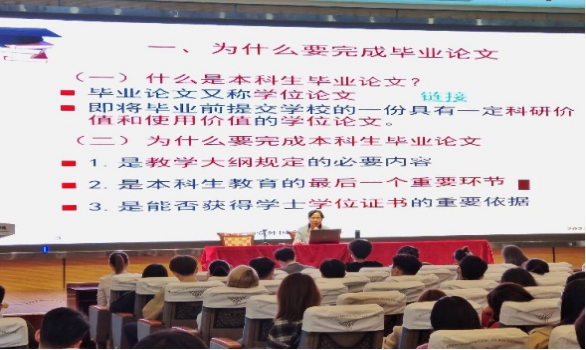 一、为什么要完成毕业论文
（一）什么是本科生毕业论文？
毕业论文又称学位论文 链接
即将毕业前提交学校的一份具有一定科研价
值和使用价值的学位论文。
（二）为什么要完成本科生毕业论文
1. 是教学大纲规定的必要内容
2. 是本科生教育的最后一个重要环节
3. 是能否获得学士学位证书的重要依据